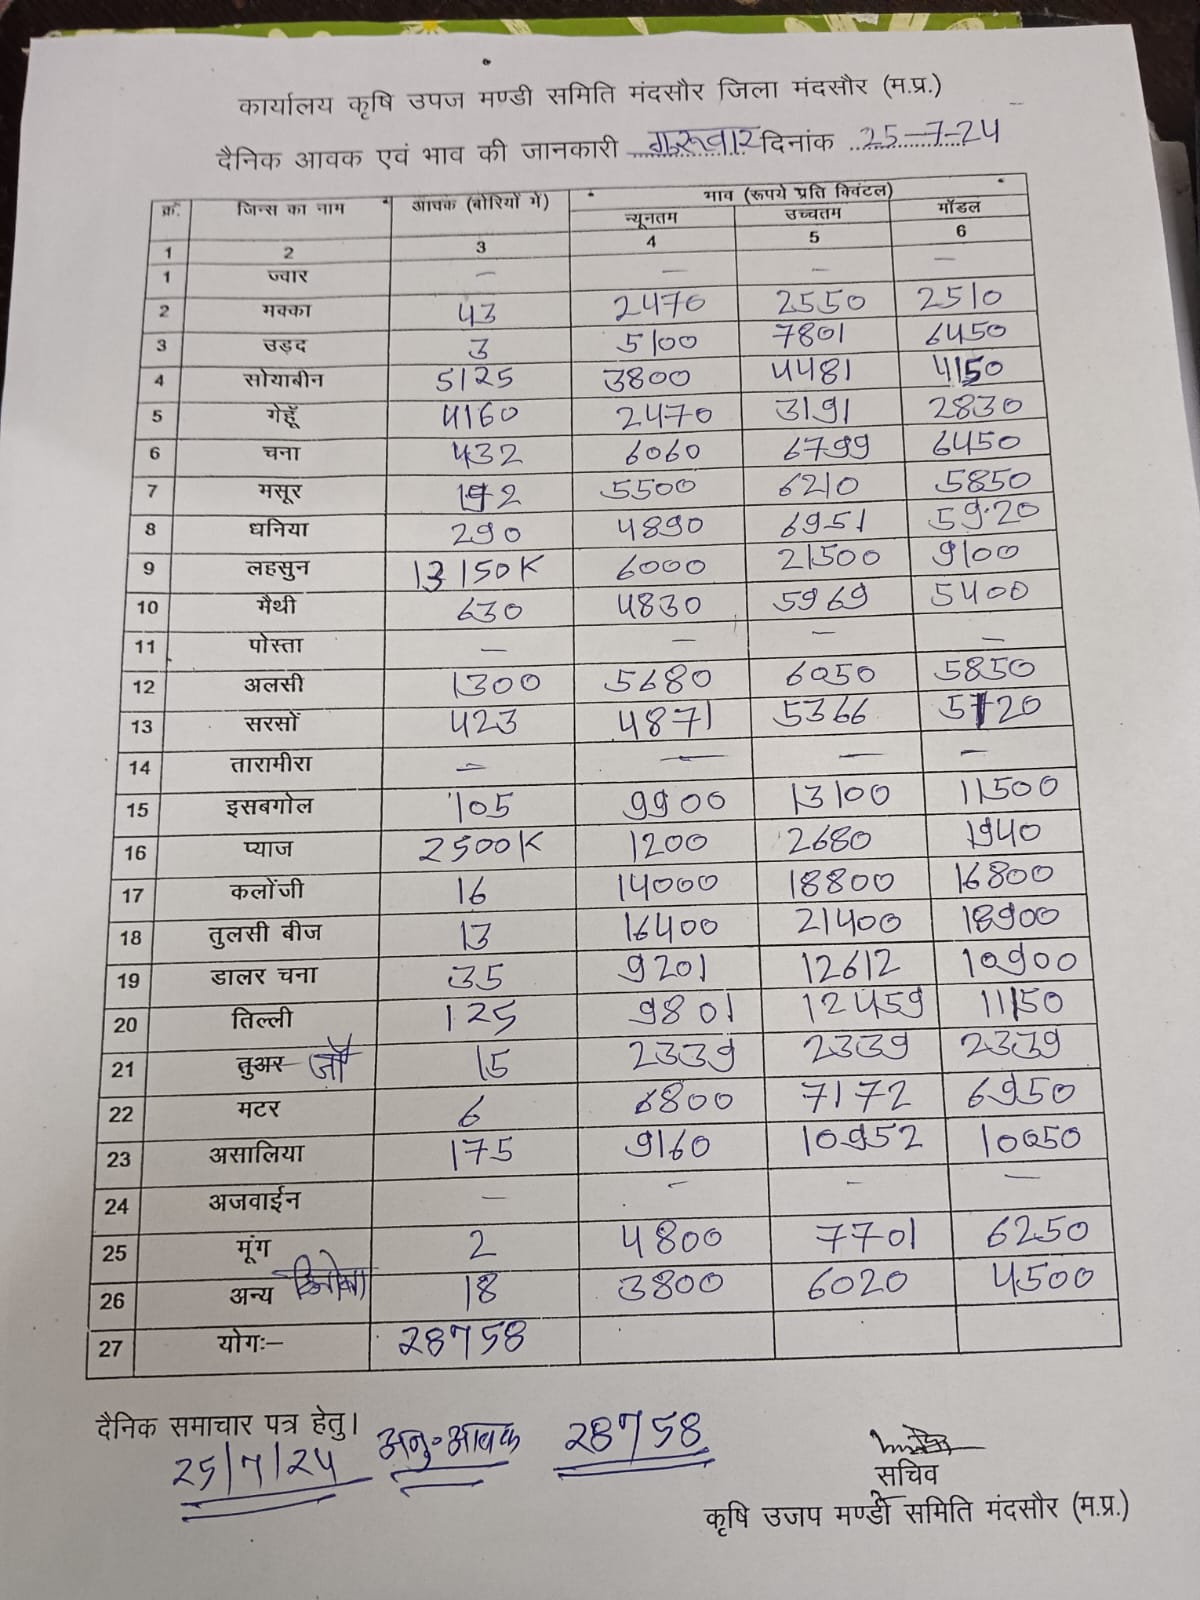 कार्यालय कृषि उपज मण्डी समिति मंदसौर जिला मंदसौर (म.प्र.)
दैनिक आवक एवं भाव की जानकारी गुरूवार दिनांक 25-7-24
क्र. जिन्स का नाम आवक (बोरियों में) भाव (रूपये प्रति क्विंटल)
न्यूनतम उच्चतम मॉडल
1 2 3 4 5 6
1 ज्वार – – – –
2 मक्का 43 2470 2550 2510
3 उड़द 3 5100 7801 6450
4 सोयाबीन 5125 3800 4481 4150
5 गेहूँ 4160 2470 3191 2830
6 चना 432 6060 6799 6450
7 मसूर 192 5500 6210 5850
8 धनिया 290 4890 6951 59.20
9 लहसुन 13150K 6000 21500 9100
10 मैथी 630 4830 5969 5400
11 पोस्ता – – – –
12 अलसी 1300 5680 6050 5850
13 सरसों 423 4871 5366 5120
14 तारामीरा – – – –
15 इसबगोल 105 9900 13100 11500
16 प्याज 2500K 1200 2680 1940
17 कलोंजी 16 14000 18800 16800
18 तुलसी बीज 13 16400 21400 18900
19 डालर चना 35 9201 12612 10900
20 तिल्ली 125 9801 12459 11150
21 तुअर जौ 15 2339 2339 2339
22 मटर 6 6800 7172 6950
23 असालिया 175 9160 10952 10050
24 अजवाईन – – – –
25 मूंग 2 4800 7701 6250
26 अन्य 18 3800 6020 4500
27 योगः– 28758
दैनिक समाचार पत्र हेतु।
25/7/24 अनु॰आवक 28758
सचिव
कृषि उजप मण्डी समिति मंदसौर (म.प्र.)